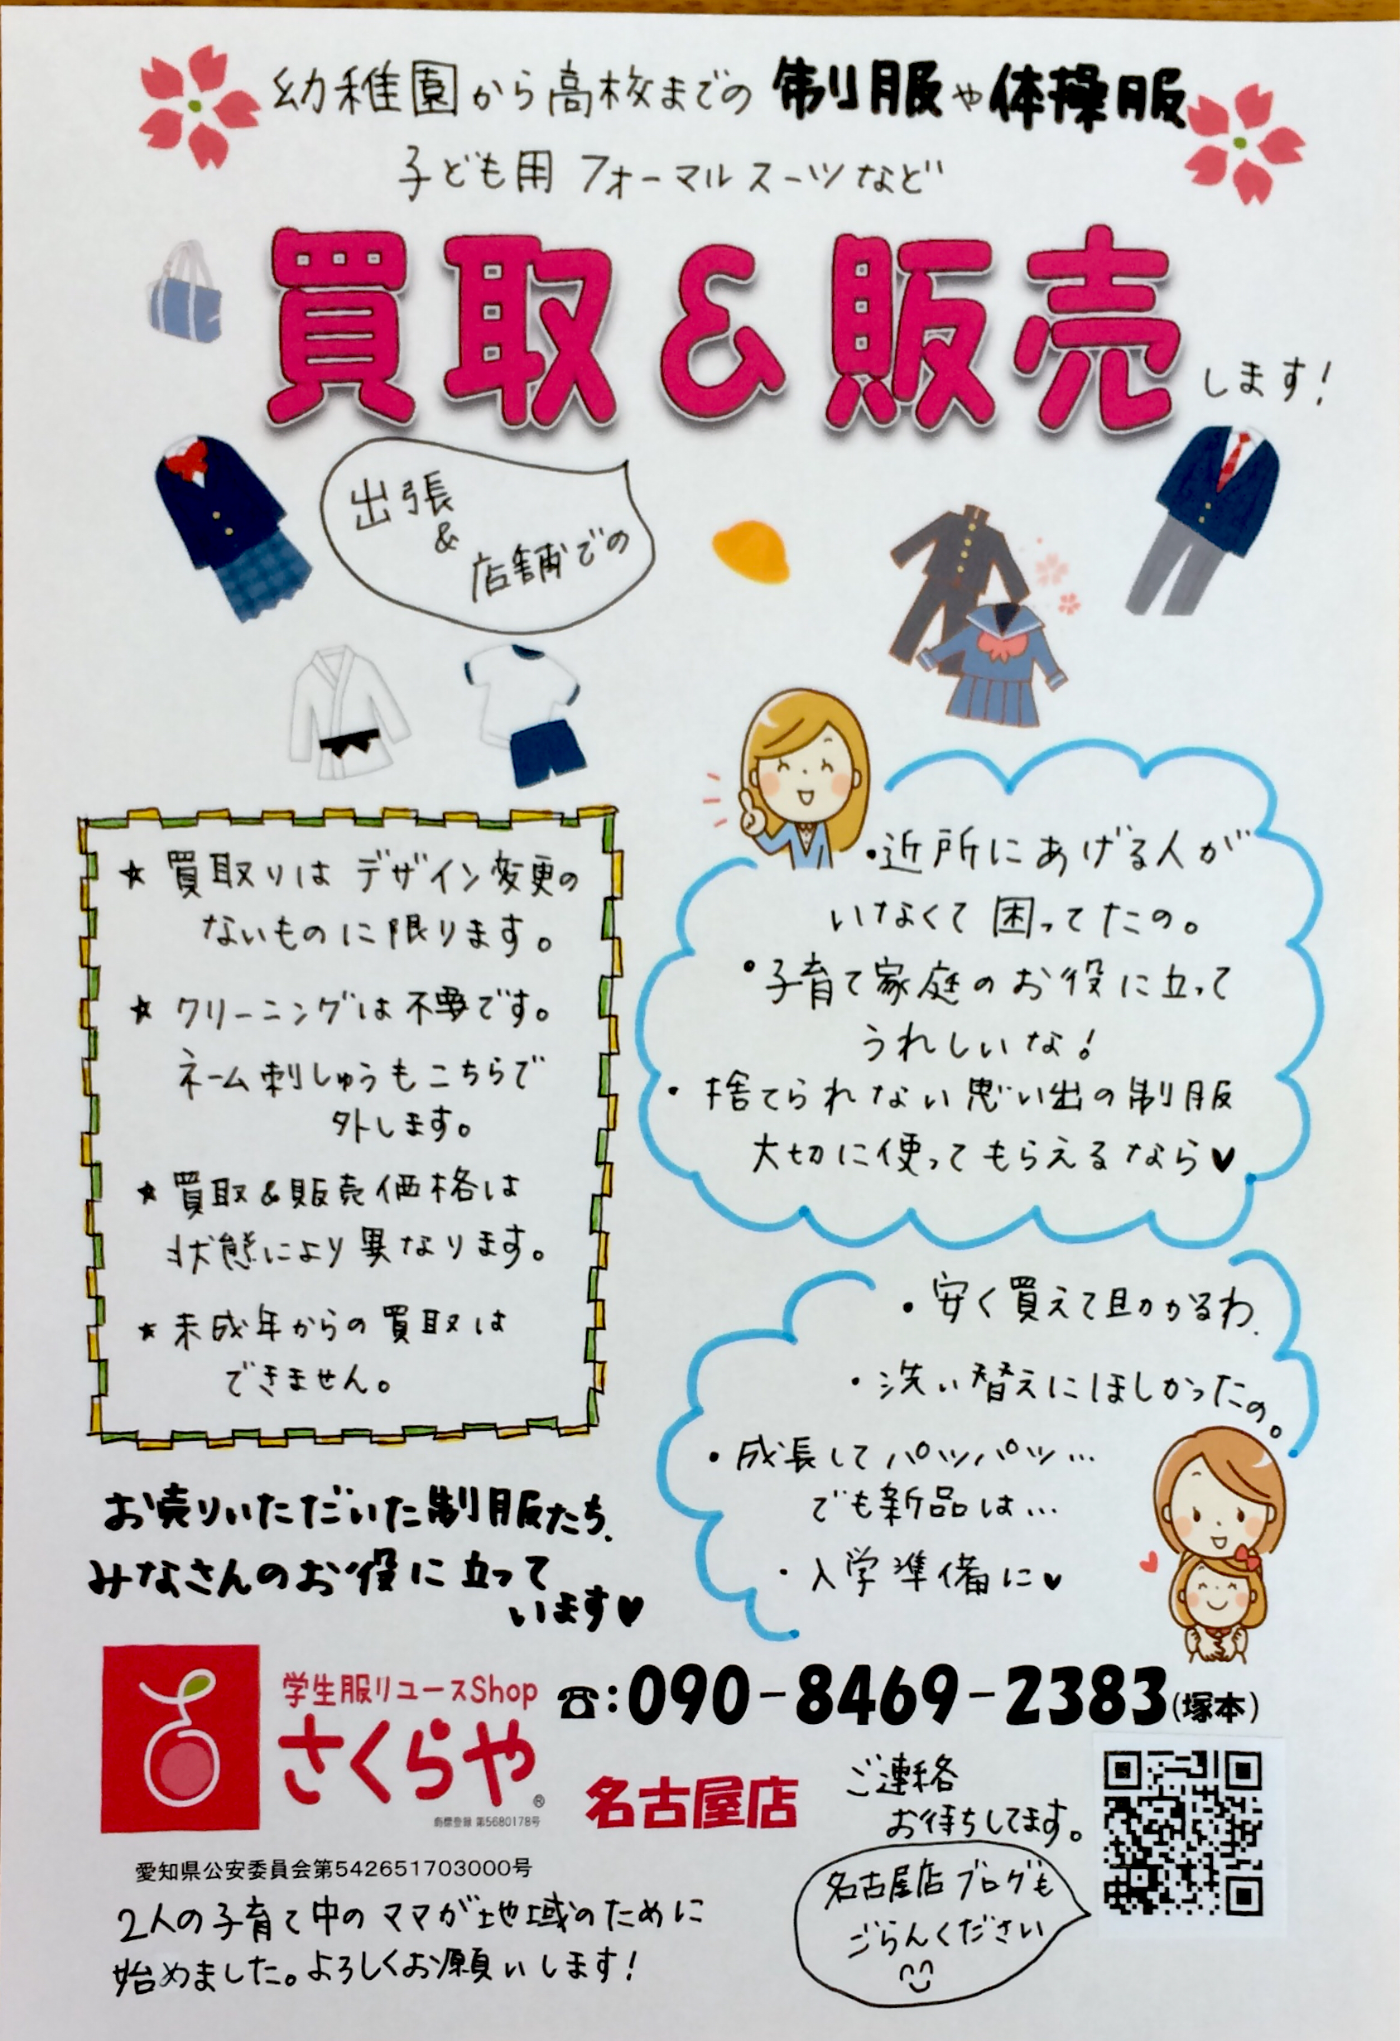 幼稚園から高校までの制服や体操服
子ども用 フォーマルスーツなど
買取&販売します!
出張
&
店舗での
★ 買取りはデザイン変更の
ないものに限ります。
★ クリーニングは不要です。
ネーム刺しゅうもこちらで
外します。
★ 買取&販売価格は
状態により異なります。
★ 未成年からの買取は
できません。
・近所にあげる人が
いなくて困ってたの。
・子育て家庭のお役に立って
うれしいな!
・捨てられない思い出の制服
大切に使ってもらえるなら♥
・安く買えて助かるわ.
・洗い替えにほしかったの。
・成長してパツパツ…
でも新品は…
・入学準備に♥
お売りいただいた制服たち、
みなさんのお役に立って
います♥
学生服リユースShop
さくらや®
商標登録 第5680178号
名古屋店
☎:090-8469-2383(塚本)
ご連絡
お待ちしてます。
名古屋店ブログも
ごらんください
愛知県公安委員会第542651703000号
2人の子育て中のママが地域のために
始めました。よろしくお願いします!